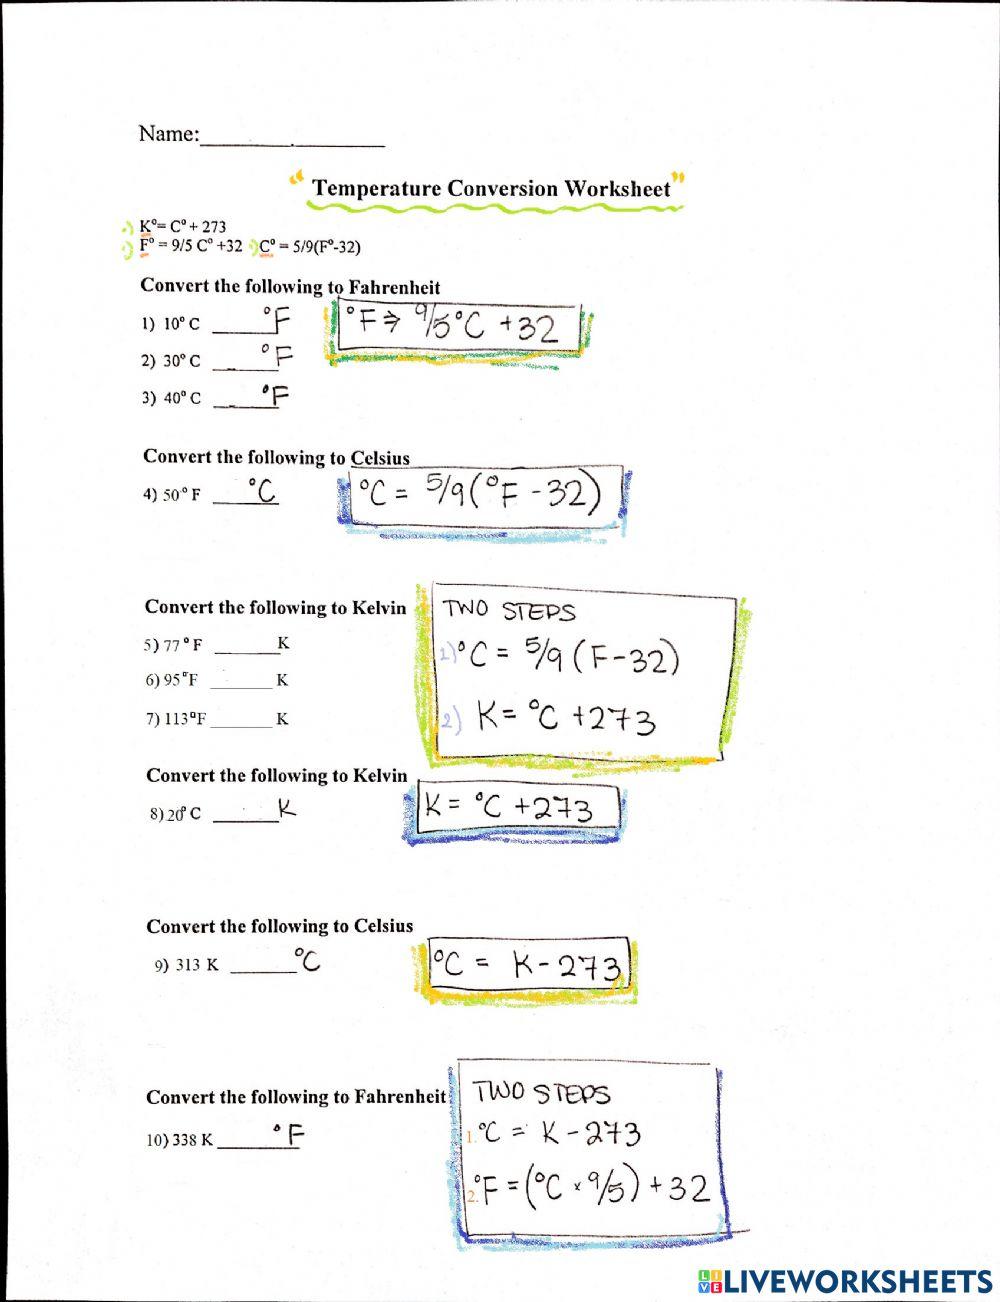 Name:
" Temperature Conversion Worksheet "
K°= C° + 273
F° = 9/5 C° +32 C° = 5/9(F°-32)
Convert the following to Fahrenheit
1) 10° C °F
°F ⇒ 9/5 °C + 32
2) 30° C °F
3) 40° C °F
Convert the following to Celsius
4) 50° F °C
°C = 5/9 (°F - 32)
Convert the following to Kelvin
TWO STEPS
5) 77° F K
1) °C = 5/9 (F - 32)
6) 95°F K
7) 113°F K
2) K = °C + 273
Convert the following to Kelvin
8) 20° C K
K = °C + 273
Convert the following to Celsius
9) 313 K °C
°C = K - 273
Convert the following to Fahrenheit
TWO STEPS
10) 338 K °F
1. °C = K - 273
2. °F = (°C × 9/5) + 32
LIVE LIVEWORKSHEETS